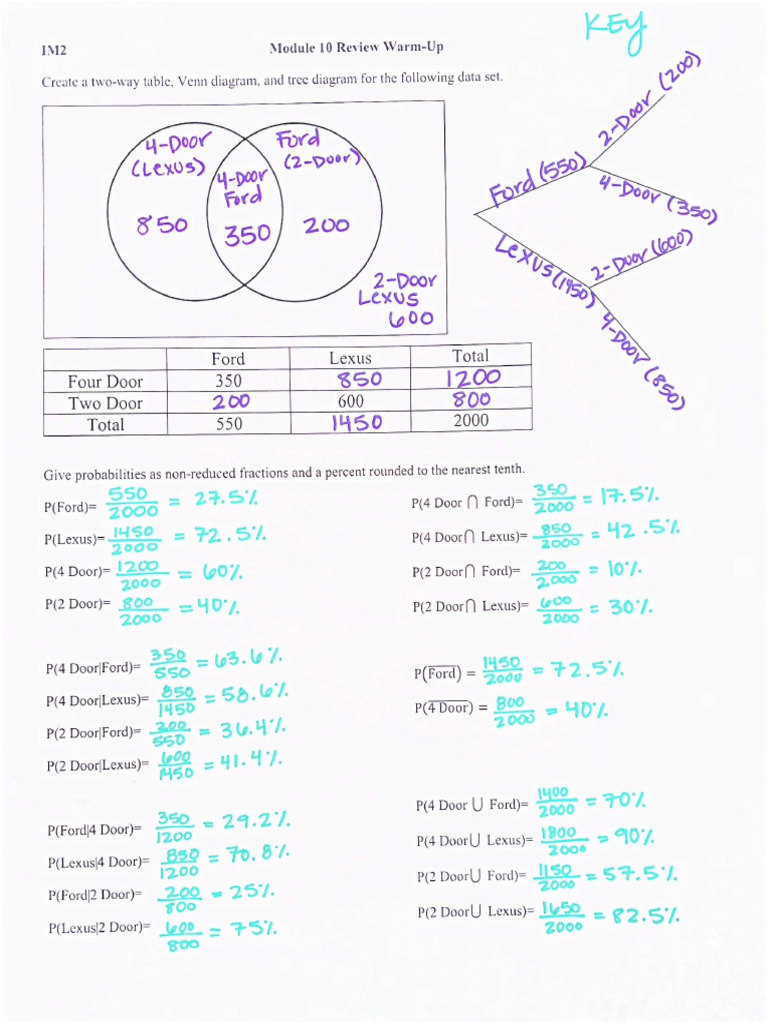 KEY
IM2 Module 10 Review Warm-Up
Create a two-way table, Venn diagram, and tree diagram for the following data set.
4-Door
(Lexus)
850
4-Door
Ford
350
Ford
(2-Door)
200
2-Door
Lexus
600
Ford (550)
2-Door (200)
4-Door (350)
Lexus (1450)
2-Door (600)
4-Door (850)
Ford Lexus Total
Four Door 350 850 1200
Two Door 200 600 800
Total 550 1450 2000
Give probabilities as non-reduced fractions and a percent rounded to the nearest tenth.
P(Ford)= 550/2000 = 27.5%
P(Lexus)= 1450/2000 = 72.5%
P(4 Door)= 1200/2000 = 60%
P(2 Door)= 800/2000 = 40%
P(4 Door ∩ Ford)= 350/2000 = 17.5%
P(4 Door∩ Lexus)= 850/2000 = 42.5%
P(2 Door∩ Ford)= 200/2000 = 10%
P(2 Door∩ Lexus)= 600/2000 = 30%
P(4 Door|Ford)= 350/550 = 63.6%
P(4 Door|Lexus)= 850/1450 = 58.6%
P(2 Door|Ford)= 200/550 = 36.4%
P(2 Door|Lexus)= 600/1450 = 41.4%
P(F̅o̅r̅d̅) = 1450/2000 = 72.5%
P(4̅ ̅D̅o̅o̅r̅) = 800/2000 = 40%
P(Ford|4 Door)= 350/1200 = 29.2%
P(Lexus|4 Door)= 850/1200 = 70.8%
P(Ford|2 Door)= 200/800 = 25%
P(Lexus|2 Door)= 600/800 = 75%
P(4 Door ∪ Ford)= 1400/2000 = 70%
P(4 Door∪ Lexus)= 1800/2000 = 90%
P(2 Door∪ Ford)= 1150/2000 = 57.5%
P(2 Door∪ Lexus)= 1650/2000 = 82.5%